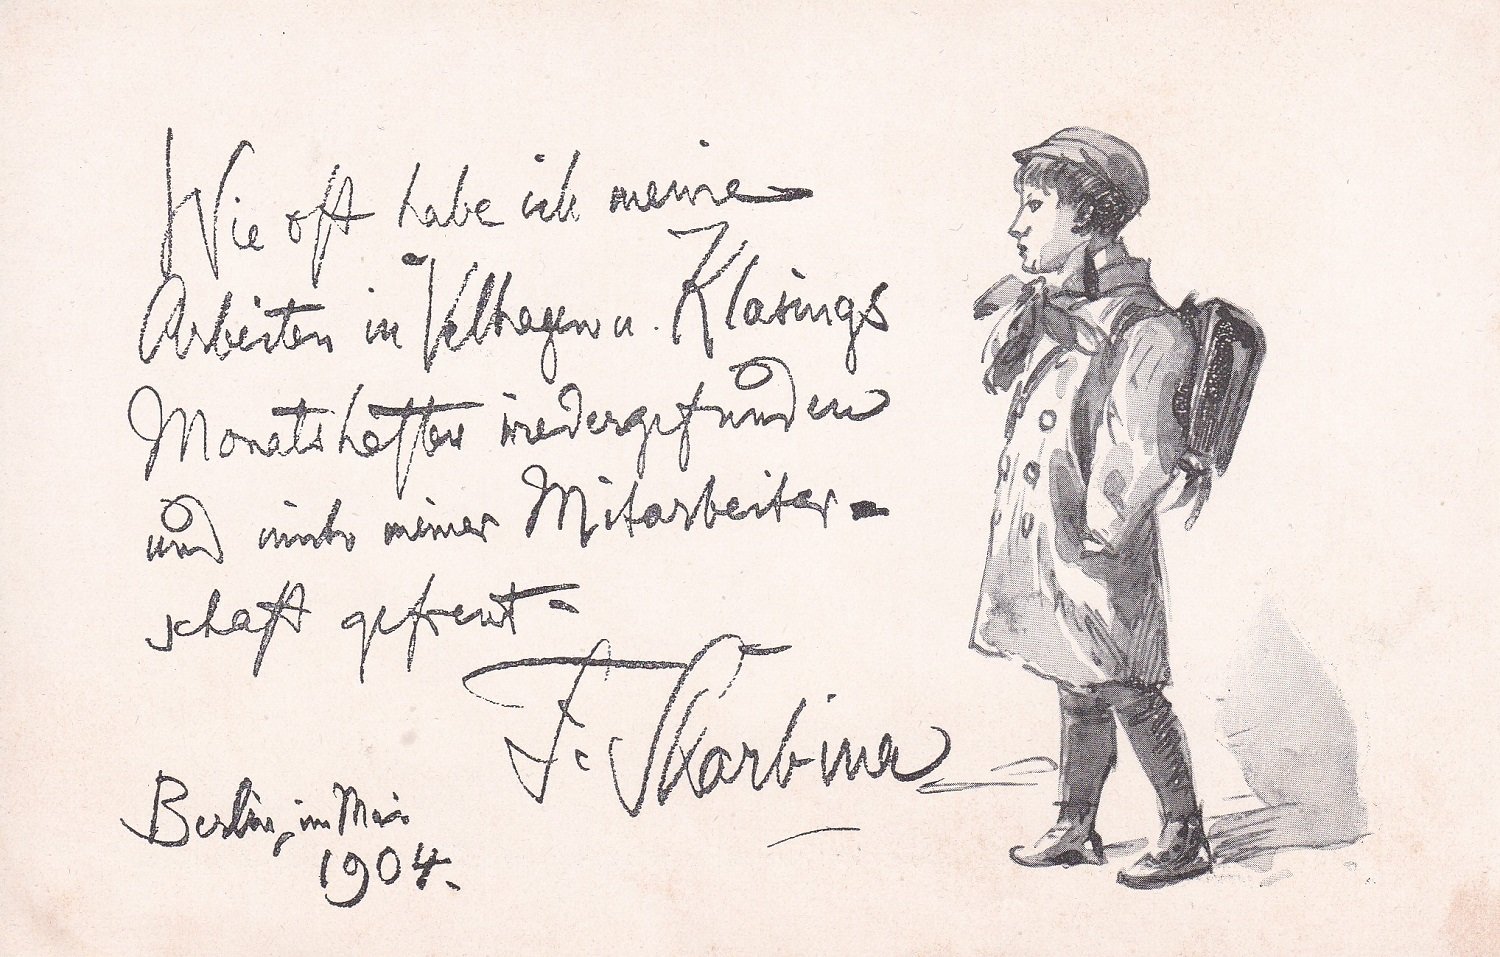 Wie oft habe ich meine
Arbeiten in Velhagen u. Klasings
Monatsheften wiedergefunden
und mich meiner Mitarbeiter-
schaft gefreut-
F. Skarbina
Berlin, im Mai
1904.